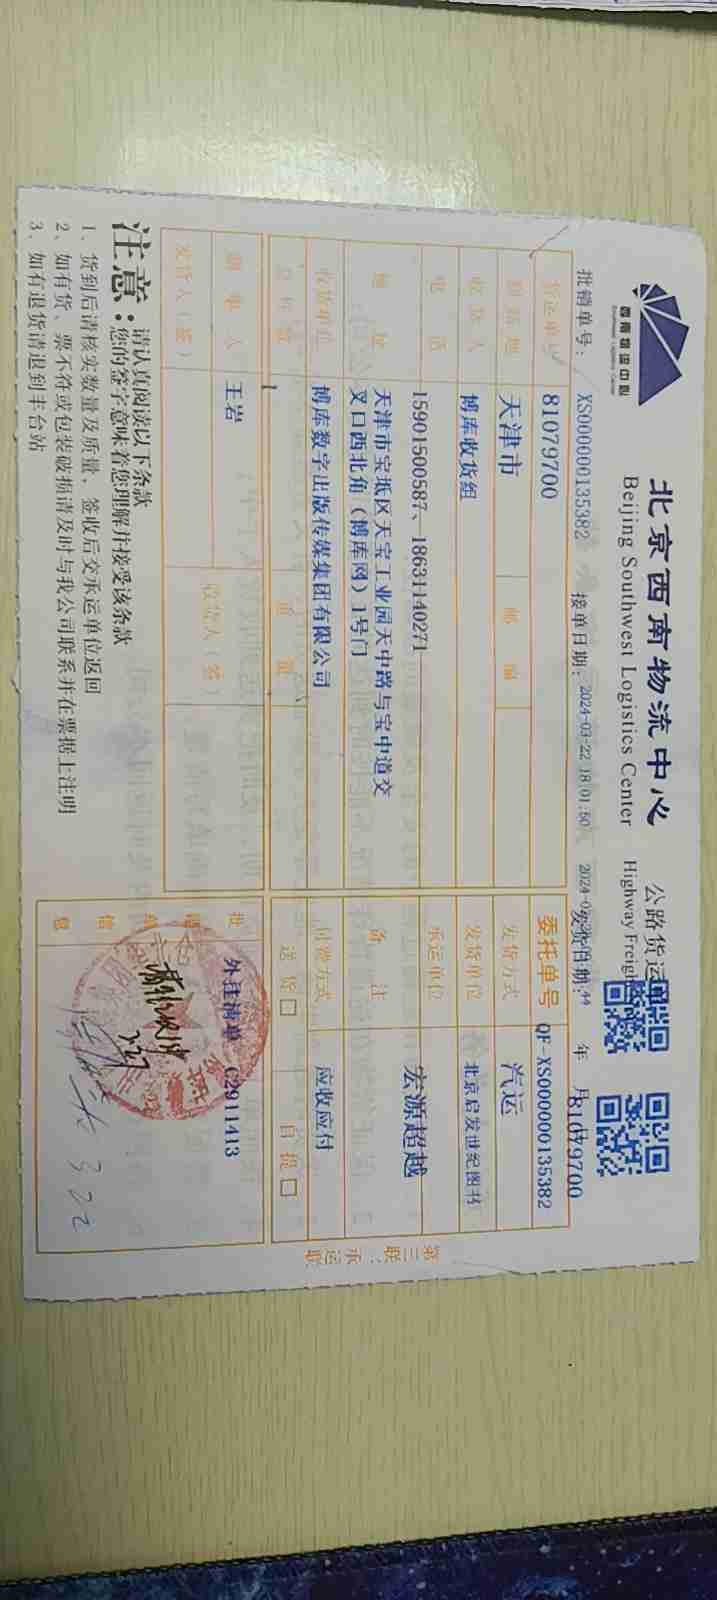 西南物流中心
Southwest Logistics Center
北京西南物流中心
Beijing Southwest Logistics Center
公路货运
Highway Freigh
批销单号: XS000000135382
接单日期: 2024-03-22 18:01:50
发货日期:
年 月
81079700
货运单号 81079700
委托单号 QF-XS000000135382
到站地 天津市 邮编
发货方式 汽运
收货人 博库收货组
发货单位 北京启发世纪图书
电话 15901500587、18631140271
承运单位 宏源超越
地址 天津市宝坻区天宝工业园天中路与宝中道交
叉口西北角（博库网）1号门
备注
收货单位 博库数字出版传媒集团有限公司
付费方式 应收应付
总件数 1 重量
送货□ 自提□
制单人 王岩
收货人(签)
发货人(签)
批销单信息
外挂清单 C2911413
3.22
注意:
请认真阅读以下条款
您的签字意味着您理解并接受该条款
1、货到后请核实数量及质量，签收后交承运单位返回
2、如有货、票不符或包装破损请及时与我公司联系并在票据上注明
3、如有退货请退到丰台站
第三联：承运联